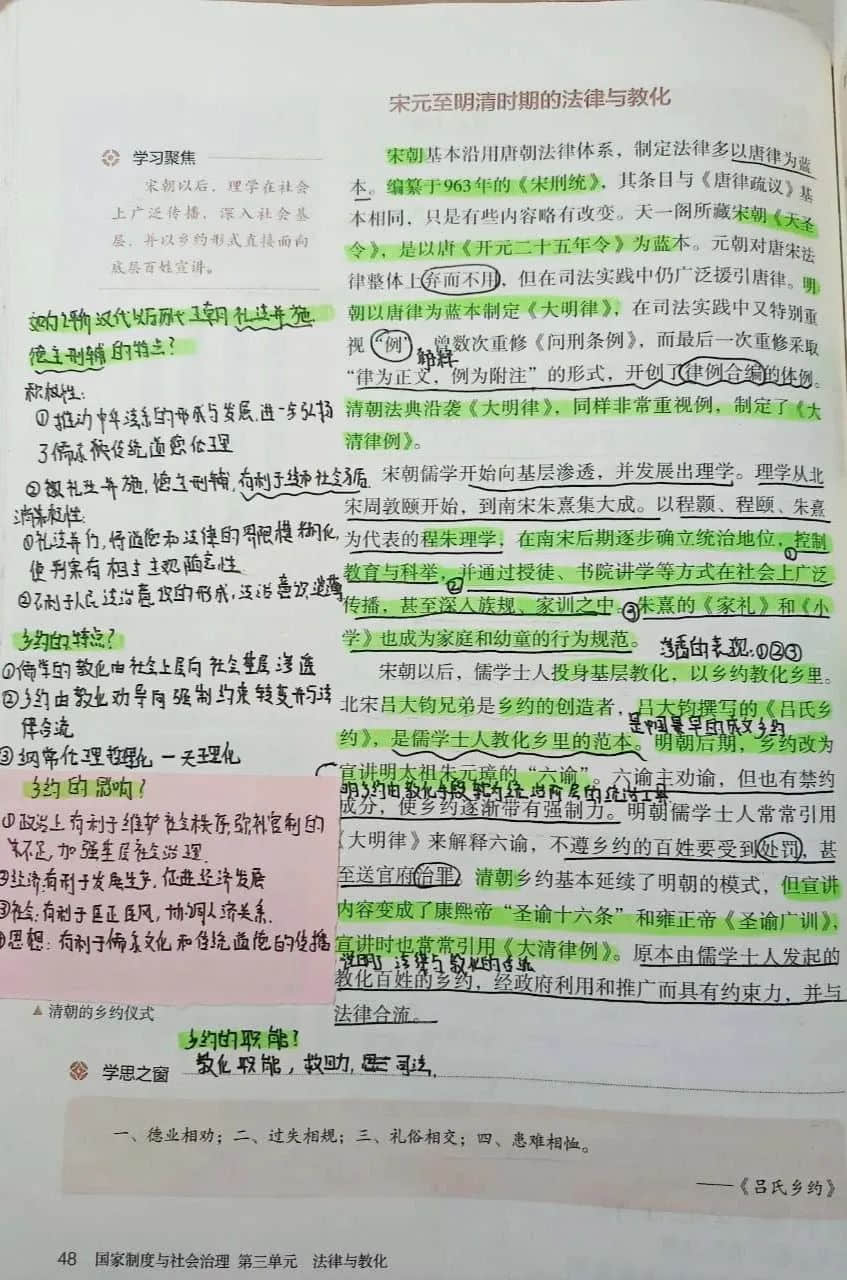 宋元至明清时期的法律与教化
学习聚焦
宋朝以后，理学在社会
上广泛传播，深入社会基
层，并以乡约形式直接面向
底层百姓宣讲。
宋朝基本沿用唐朝法律体系，制定法律多以唐律为蓝
本。编纂于963年的《宋刑统》，其条目与《唐律疏议》基
本相同，只是有些内容略有改变。天一阁所藏宋朝《天圣
令》，是以唐《开元二十五年令》为蓝本。元朝对唐宋法
律整体上弃而不用，但在司法实践中仍广泛援引唐律。明
朝以唐律为蓝本制定《大明律》，在司法实践中又特别重
视“例”，曾数次重修《问刑条例》，而最后一次重修采取
解释
“律为正文，例为附注”的形式，开创了律例合编的体例。
清朝法典沿袭《大明律》，同样非常重视例，制定了《大
清律例》。
宋朝儒学开始向基层渗透，并发展出理学。理学从北
宋周敦颐开始，到南宋朱熹集大成。以程颢、程颐、朱熹
为代表的程朱理学，在南宋后期逐步确立统治地位，控制
①
教育与科举，②并通过授徒、书院讲学等方式在社会上广泛
传播，甚至深入族规、家训之中。③朱熹的《家礼》和《小
学》也成为家庭和幼童的行为规范。
渗透的表现：①②③
宋朝以后，儒学士人投身基层教化，以乡约教化乡里。
北宋吕大钧兄弟是乡约的创造者，吕大钧撰写的《吕氏乡
是中国最早的成文乡约
约》，是儒学士人教化乡里的范本。明朝后期，乡约改为
宣讲明太祖朱元璋的“六谕”。六谕主劝谕，但也有禁约
明乡约由教化手段转为统治阶层的统治工具
成分，使乡约逐渐带有强制力。明朝儒学士人常常引用
《大明律》来解释六谕，不遵乡约的百姓要受到处罚，甚
至送官府治罪。清朝乡约基本延续了明朝的模式，但宣讲
内容变成了康熙帝“圣谕十六条”和雍正帝《圣谕广训》，
宣讲时也常常引用《大清律例》。原本由儒学士人发起的
说明了法律与教化的
教化百姓的乡约，经政府利用和推广而具有约束力，并与
法律合流。
汉代以后历代王朝礼法并施
德主刑辅的特点？
积极性：
①推动中华法系的形成与发展，进一步弘扬
了儒家传统道德伦理
礼法并施，德主刑辅，有利于维护社会
消极性：
①礼法并行，将道德和法律的界限模糊化，
使判案有相当主观随意性
②不利于人民法治意识的形成，法治意识淡薄
乡约的特点？
①儒学的教化由社会上层向社会基层渗透
②乡约由教化劝导向强制约束转变并与法
律合流
③纲常伦理哲理化—天理化
乡约的影响？
①政治上有利于维护社会秩序，弥补官制的
不足，加强基层社会治理
②经济：有利于发展生产，促进经济发展
③社会：有利于匡正民风，协调人际关系
④思想：有利于儒家文化和传统道德的传播
清朝的乡约仪式
乡约的职能！
教化职能，救助，司法
学思之窗
一、德业相劝；二、过失相规；三、礼俗相交；四、患难相恤。
——《吕氏乡约》
48 国家制度与社会治理 第三单元 法律与教化